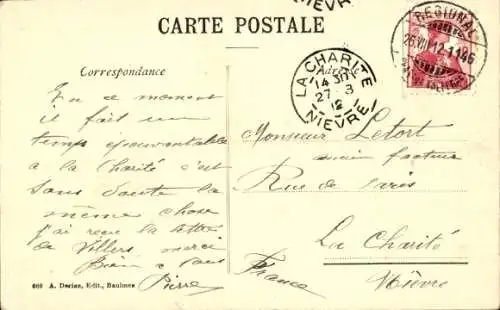 NIÈVRE
CARTE POSTALE
REGIONAL
26.VII.12.11
LA CHARITÉ
14 30
27 - 8
12
NIÈVRE
Correspondance
Adresse
En ce moment
il fait un
temps épouvantable
à la Charité c'est
sans doute la
même chose
j'ai reçu la lettre
de Villers merci
Bien à vous
Pierre
Monsieur Letort
ancien facteur
Rue de Paris
La Charité
Nièvre
France
609 A. Deriaz, Edit., Baulmes